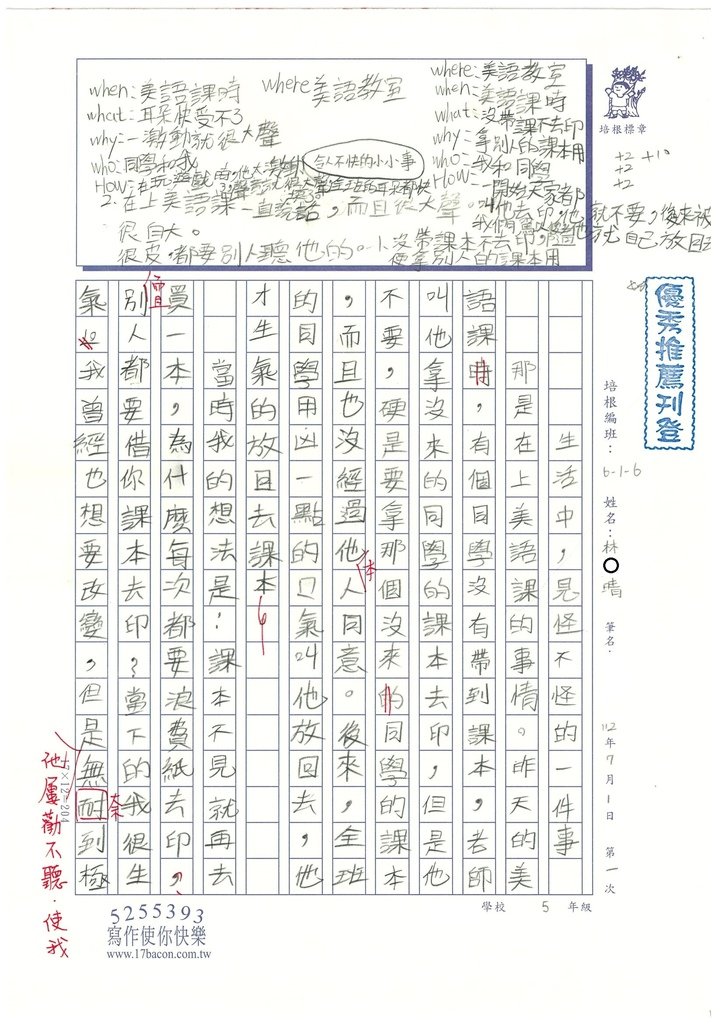 when:美語課時
what:耳朵快受不了
why:一激動就很大聲
who:同學和我
where美語教室
where:美語教室
when:美語課時
what:沒帶課不去印
why:拿別人的課本用
who:我和同學
令人不快的小小事
2.在上美語課一直說話,而且很大聲。
很自大。
很皮,都要別人聽他的。
沒帶課本不去印,
便拿別人的課本用
培根標章
+2 +10
+2
+2
優秀推薦刊登
培根編班:6-1-6 姓名:林○晴 筆名:
112年7月1日 第一次
學校 5 年級
生活中,見怪不怪的一件事
那是在上美語課的事情。昨天的美
語課時,有個同學沒有帶到課本,老師
叫他拿沒來的同學的課本去印,但是他
不要,硬是要拿那個沒來的同學的課本
,而且也沒經過他人同意。後來,全班
本
的同學用凶一點的口氣叫他放回去,他
才生氣的放回去課本
當時我的想法是:課本不見就再去
買一本,為什麼每次都要浪費紙去印,
會
別人都要借你課本去印?當下的我很生
氣
我曾經也想要改變,但是無耐到極
奈
他屢勸不聽.使我
17×12=204
5255393
寫作使你快樂
www.17bacon.com.tw